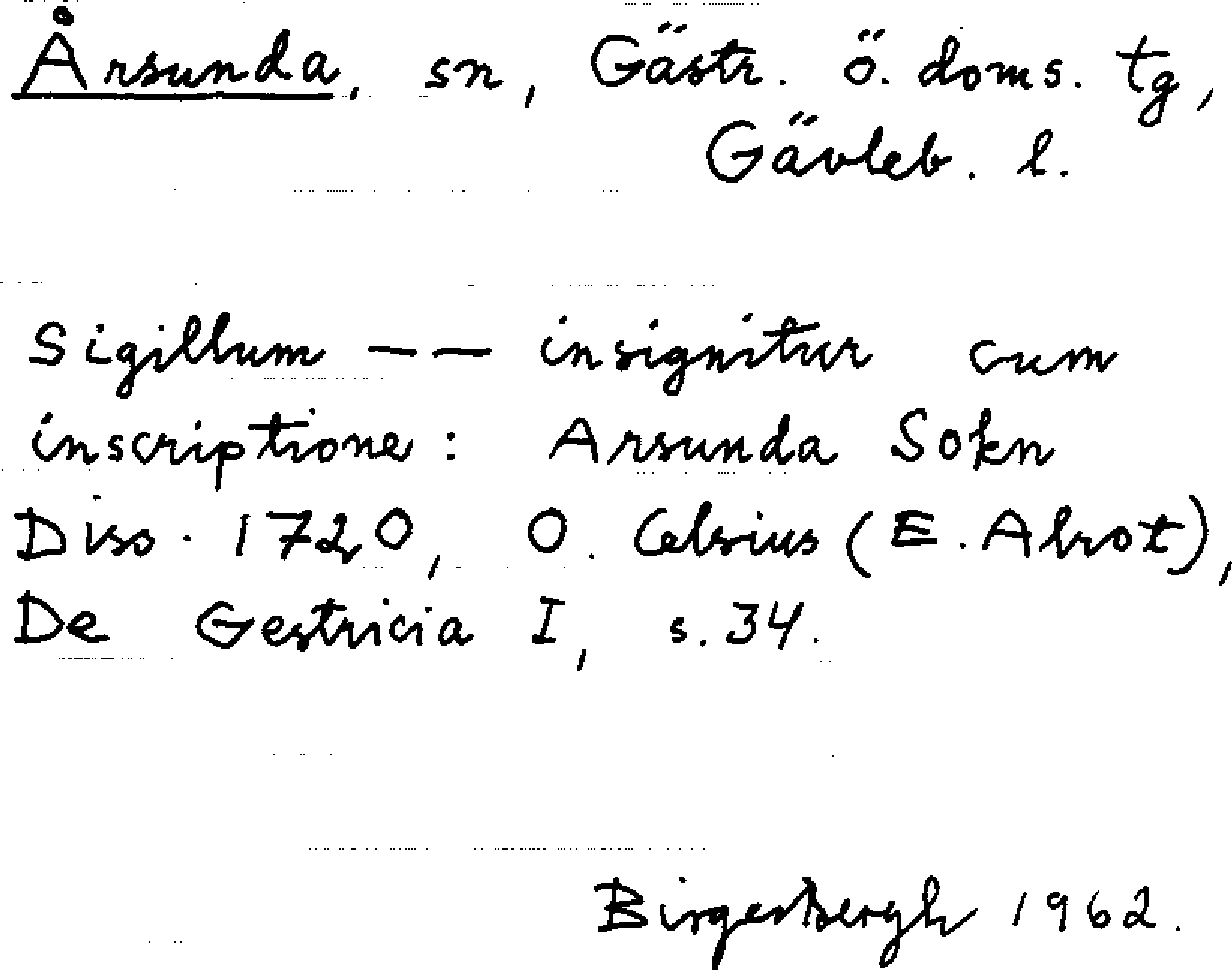 Årsunda, sn, Gästr. ö. doms. tg,
Gävleb. l.
Sigillum -- insignitur cum
inscriptione: Arsunda Sokn
Diss. 1720, O. Celsius (E. Alrot),
De Gestricia I, s. 34.
Birger Bergh 1962.